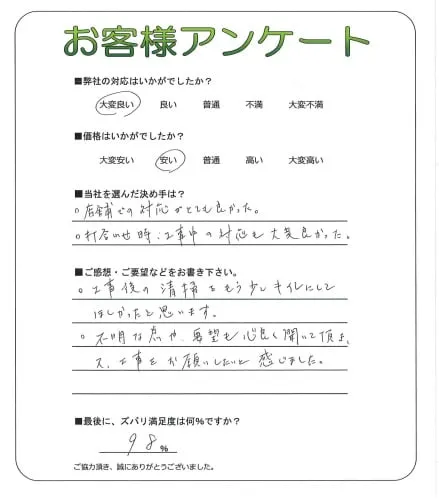 お客様アンケート
■弊社の対応はいかがでしたか?
大変良い 良い 普通 不満 大変不満
■価格はいかがでしたか?
大変安い 安い 普通 高い 大変高い
■当社を選んだ決め手は?
○店舗での対応がとても良かった。
○打合わせ時、工事中の対応も大変良かった。
■ご感想・ご要望などをお書き下さい。
○工事後の清掃をもう少しキレイにして
ほしかったと思います。
○不明な点や、要望も心良く聞いて頂き、
又、工事をお願いしたいと感じました。
■最後に、ズバリ満足度は何%ですか?
98%
ご協力頂き、誠にありがとうございました。